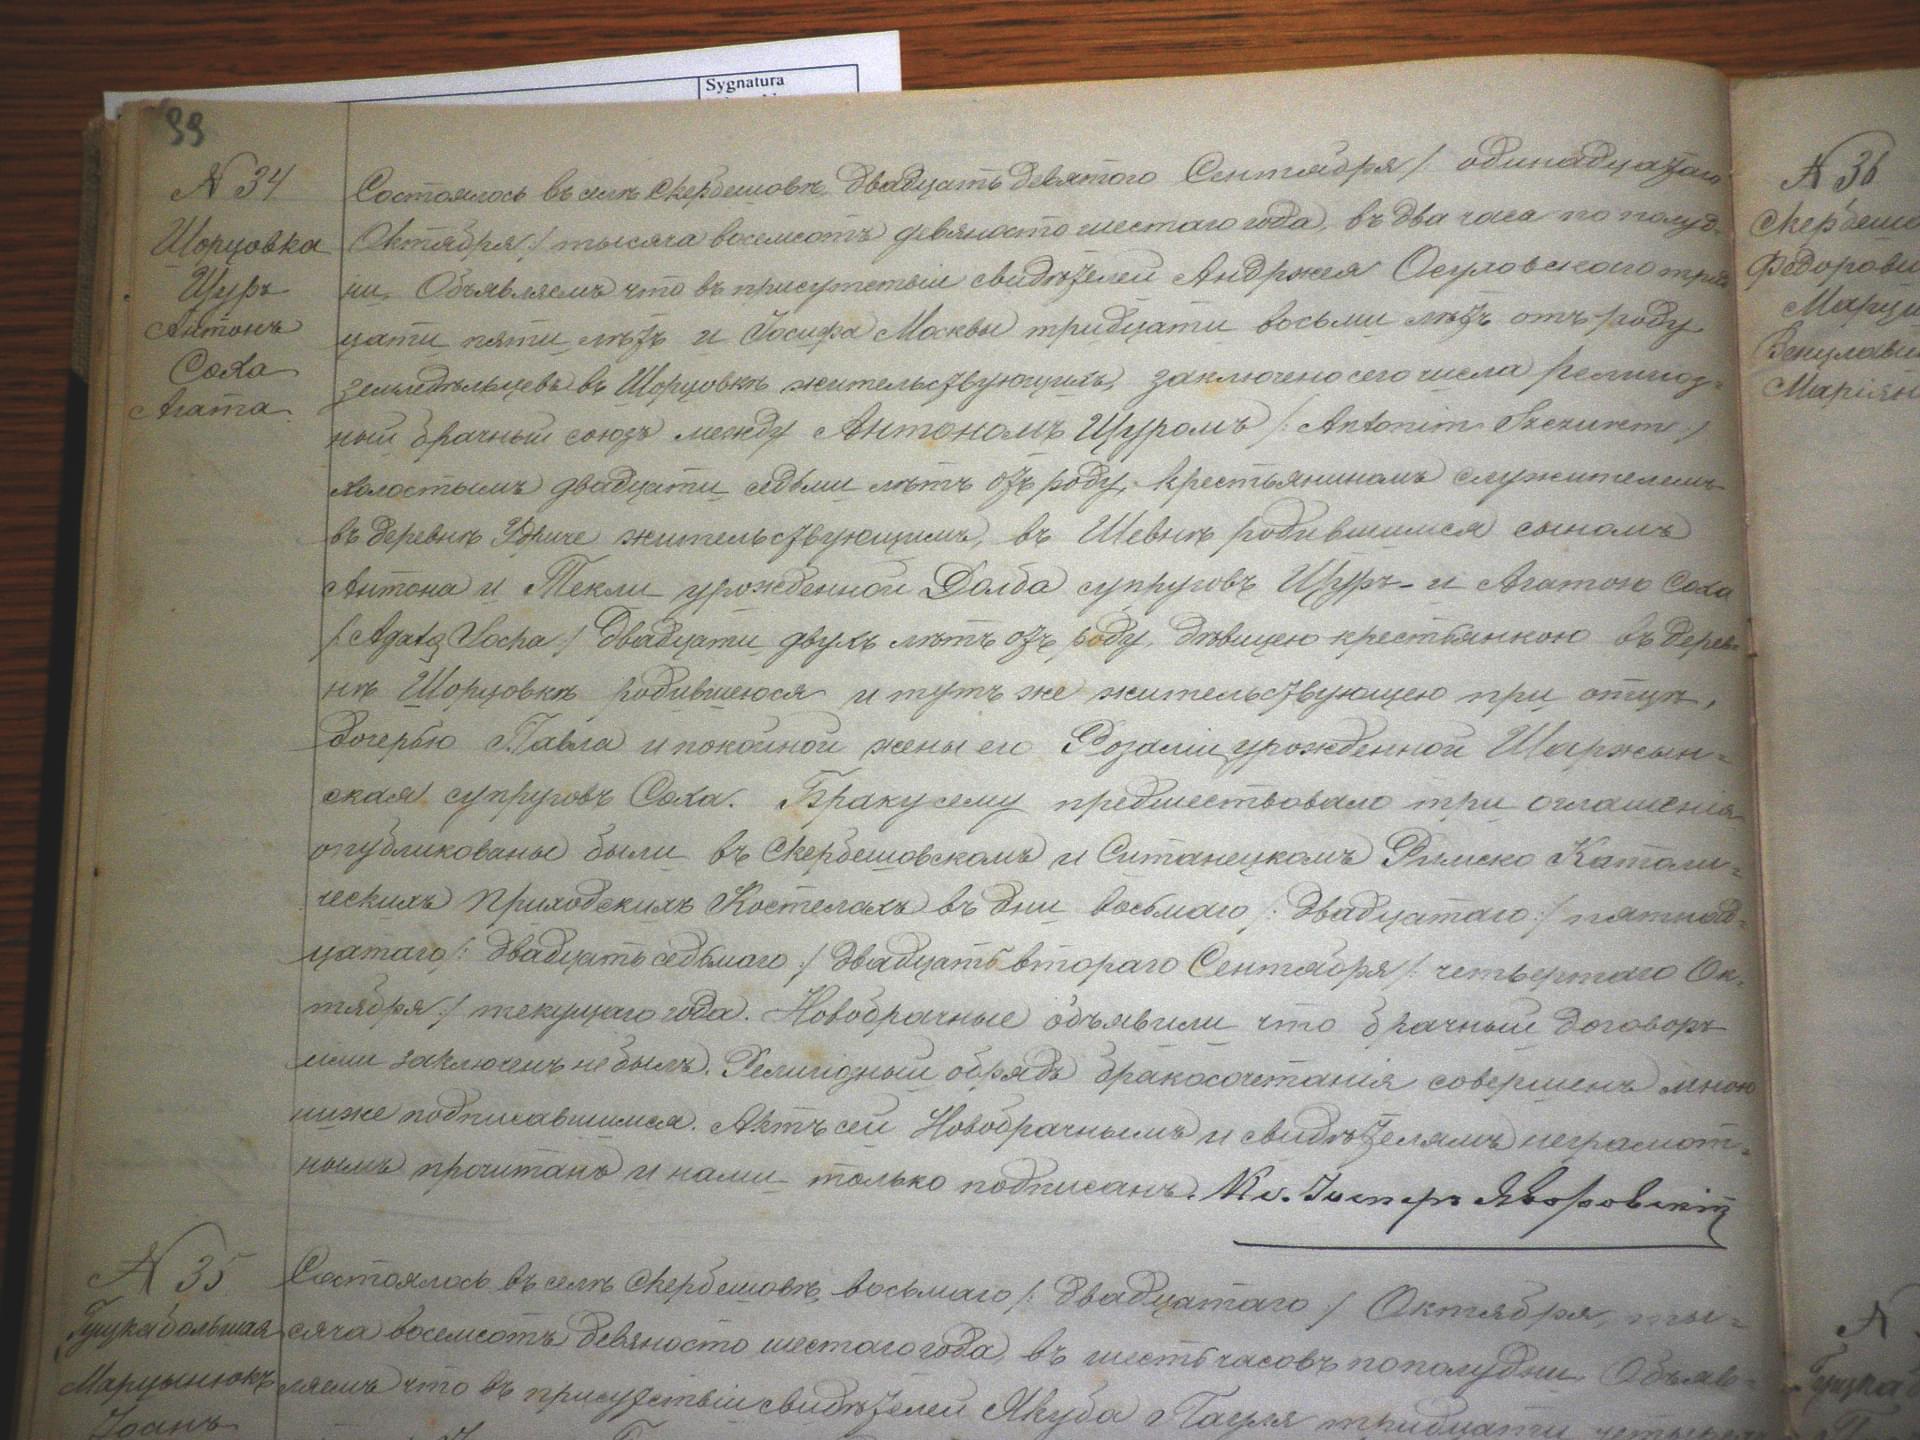 Sygnatura
99
N 34
Шорцовка
Щуръ
Антонъ
Соха
Агата
Состоялось въ селѣ Скербешовѣ, двадцать девятого Сентября /: одинадцатаго
Октября :/ тысяча восемсотъ девяносто шестаго года, въ два часа по полуд-
ни. Объявляемъ что въ присутствіи свидѣтелей Андржея Осуловского трид
цати пяти лѣтъ и Іосифа Москвы тридцати восьми лѣтъ отъ роду
земледѣльцевъ въ Шорцовкѣ жительствующихъ, заключено сего числа религіоз-
ный брачный союзъ между Антономъ Щуромъ /: Antonim Szczurem :/
холостымъ двадцати седьми лѣтъ отъ роду, крестьяниномъ служителемъ
въ деревнѣ Удриче жительствующимъ, въ Шевнѣ родившимся сыномъ
Антона и Текли урожденной Долба супруговъ Щуръ - и Агатою Соха
/: Agatą Socha :/ двадцати двухъ лѣтъ отъ роду, дѣвицею крестьянкою въ дерев-
нѣ Шорцовкѣ родившеюся и тутъ же жительствующею при отцѣ,
дочерью Павла и покойной жены его Розаліи урожденной Шаржын-
ская супруговъ Соха. Браку сему предшествовало три оглашенія
опубликованы были въ Скербешовскомъ и Ситанецкомъ Римско Католи-
ческихъ Приходскихъ Костелахъ въ дни восьмаго /: двадцатаго :/ пятнад-
цатаго /: двадцать седьмаго :/ двадцать втораго Сентября /: четвертаго Ок-
тября :/ текущаго года. Новобрачные объявили что брачный договоръ
ими заключенъ не былъ. Религіозный обрядъ бракосочетанія совершенъ мною
ниже подписавшимся. Актъ сей Новобрачнымъ и свидѣтелямъ неграмот-
нымъ прочитанъ и нами только подписанъ. Кс. Яворовскій
N 35
Гуцка большая
Марцынюкъ
Іоанъ
Состоялось въ селѣ Скербешовѣ, восьмаго /: двадцатаго :/ Октября, ты-
сяча восемсотъ девяносто шестаго года, въ шесть часовъ по полудни. Объяв-
ляемъ что въ присутствіи свидѣтелей Якуба Пагуля тридцати четырехъ
N 36
Скербешо
Федорови
Марци
Марiян
N
Гуцка б